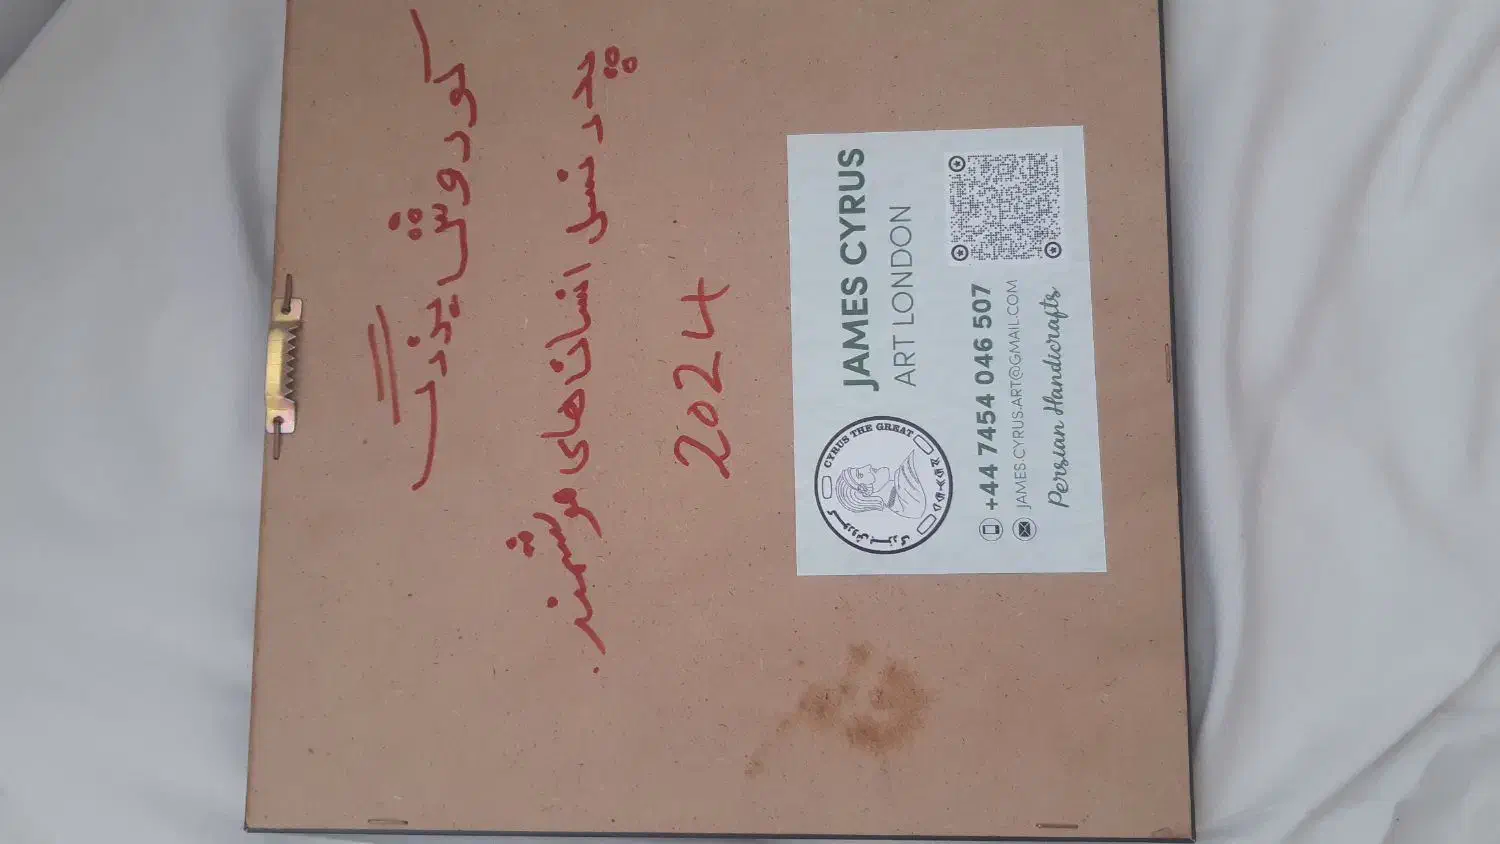 کوروش بزرگ
پدر نسل انسان‌های هوشمند.
2024
JAMES CYRUS
ART LONDON
CYRUS THE GREAT
+44 7454 046 507
JAMES.CYRUS.ART@GMAIL.COM
Persian Handicrafts